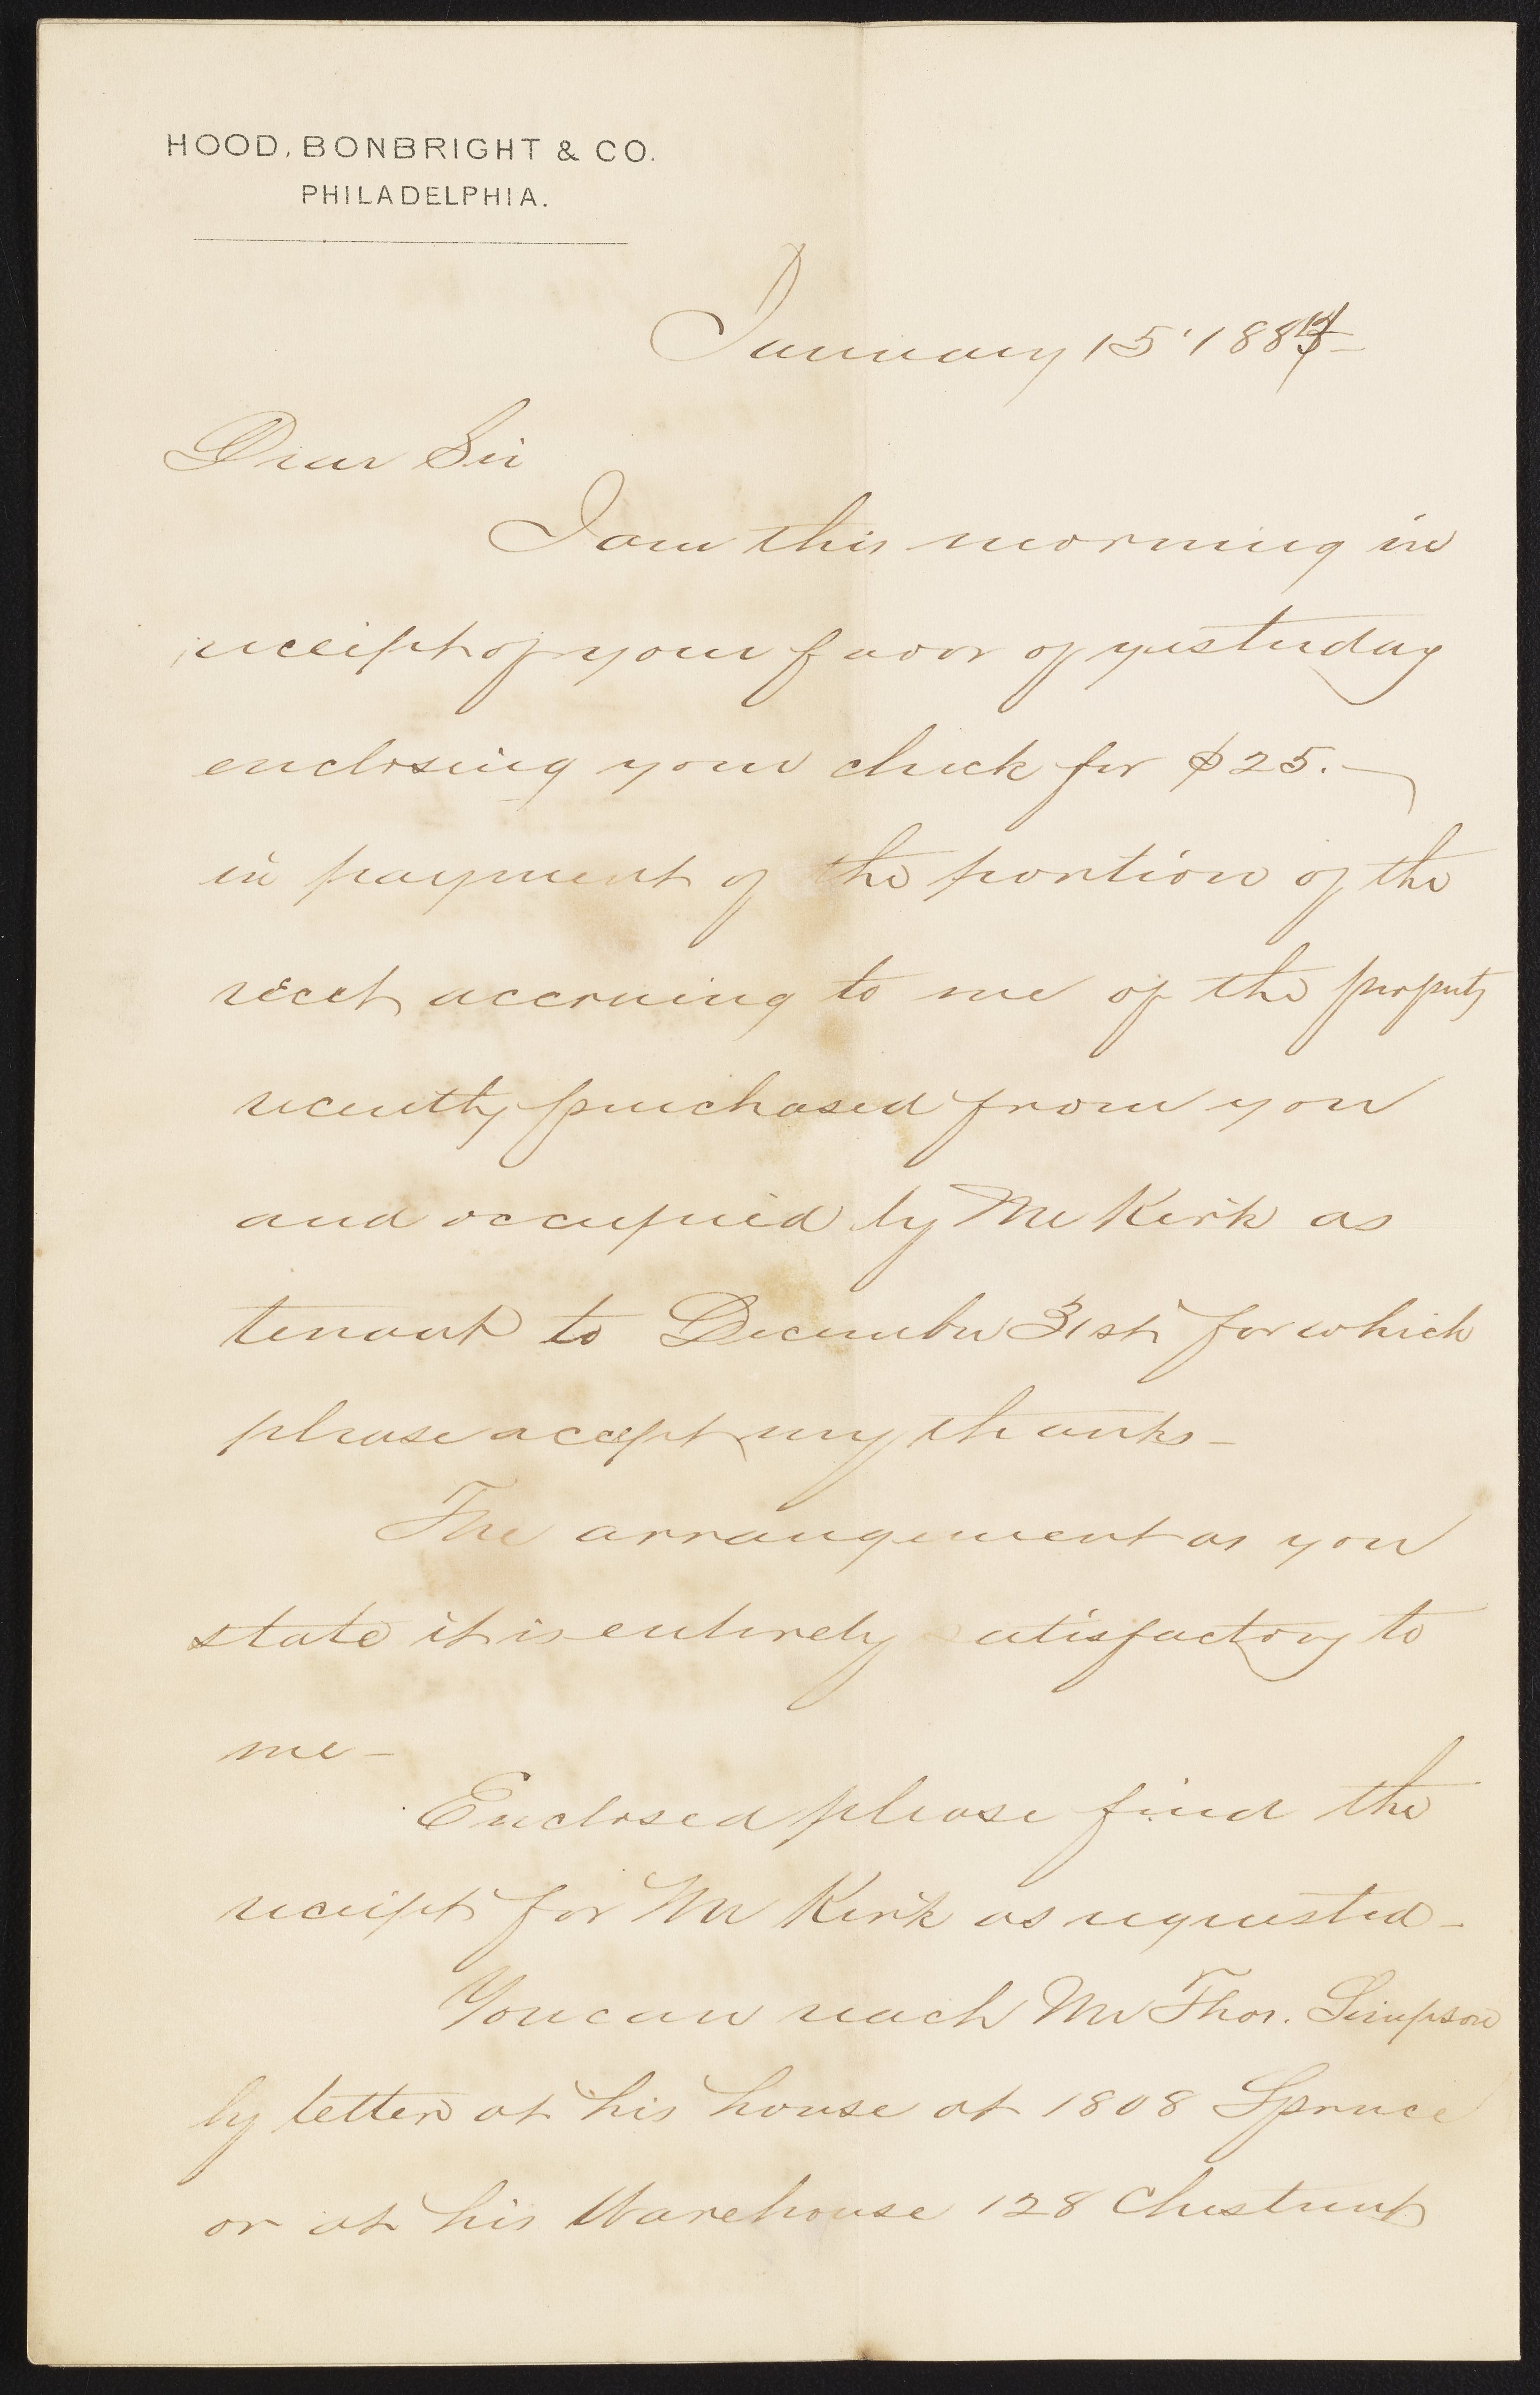 HOOD, BONBRIGHT & CO.
PHILADELPHIA.
January 15' 1884
Dear Sir
I am this morning in
receipt of your favor of yesterday
enclosing your check for $25.—
in payment of the portion of the
rent accruing to me of the property
recently purchased from you
and occupied by Mr Kirk as
tenant to December 31st for which
please accept my thanks—
The arrangement as you
state it is entirely satisfactory to
me—
Enclosed please find the
receipt for Mr Kirk as requested—
You can reach Mr Thos. Simpson
by letter at his house at 1808 Spruce
or at his Warehouse 128 Chestnut